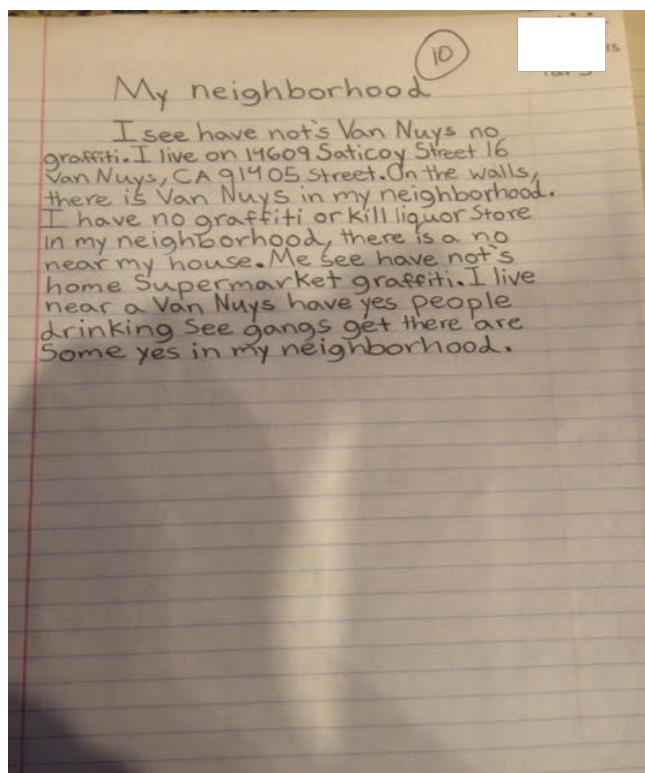 10
My neighborhood
I see have not's Van Nuys no
graffiti. I live on 14609 Saticoy Street 16
Van Nuys, CA 91405 street. On the walls,
there is Van Nuys in my neighborhood.
I have no graffiti or kill liquor Store
in my neighborhood, there is a no
near my house. Me see have not's
home Supermarket graffiti. I live
near a Van Nuys have yes people
drinking See gangs get there are
Some yes in my neighborhood.